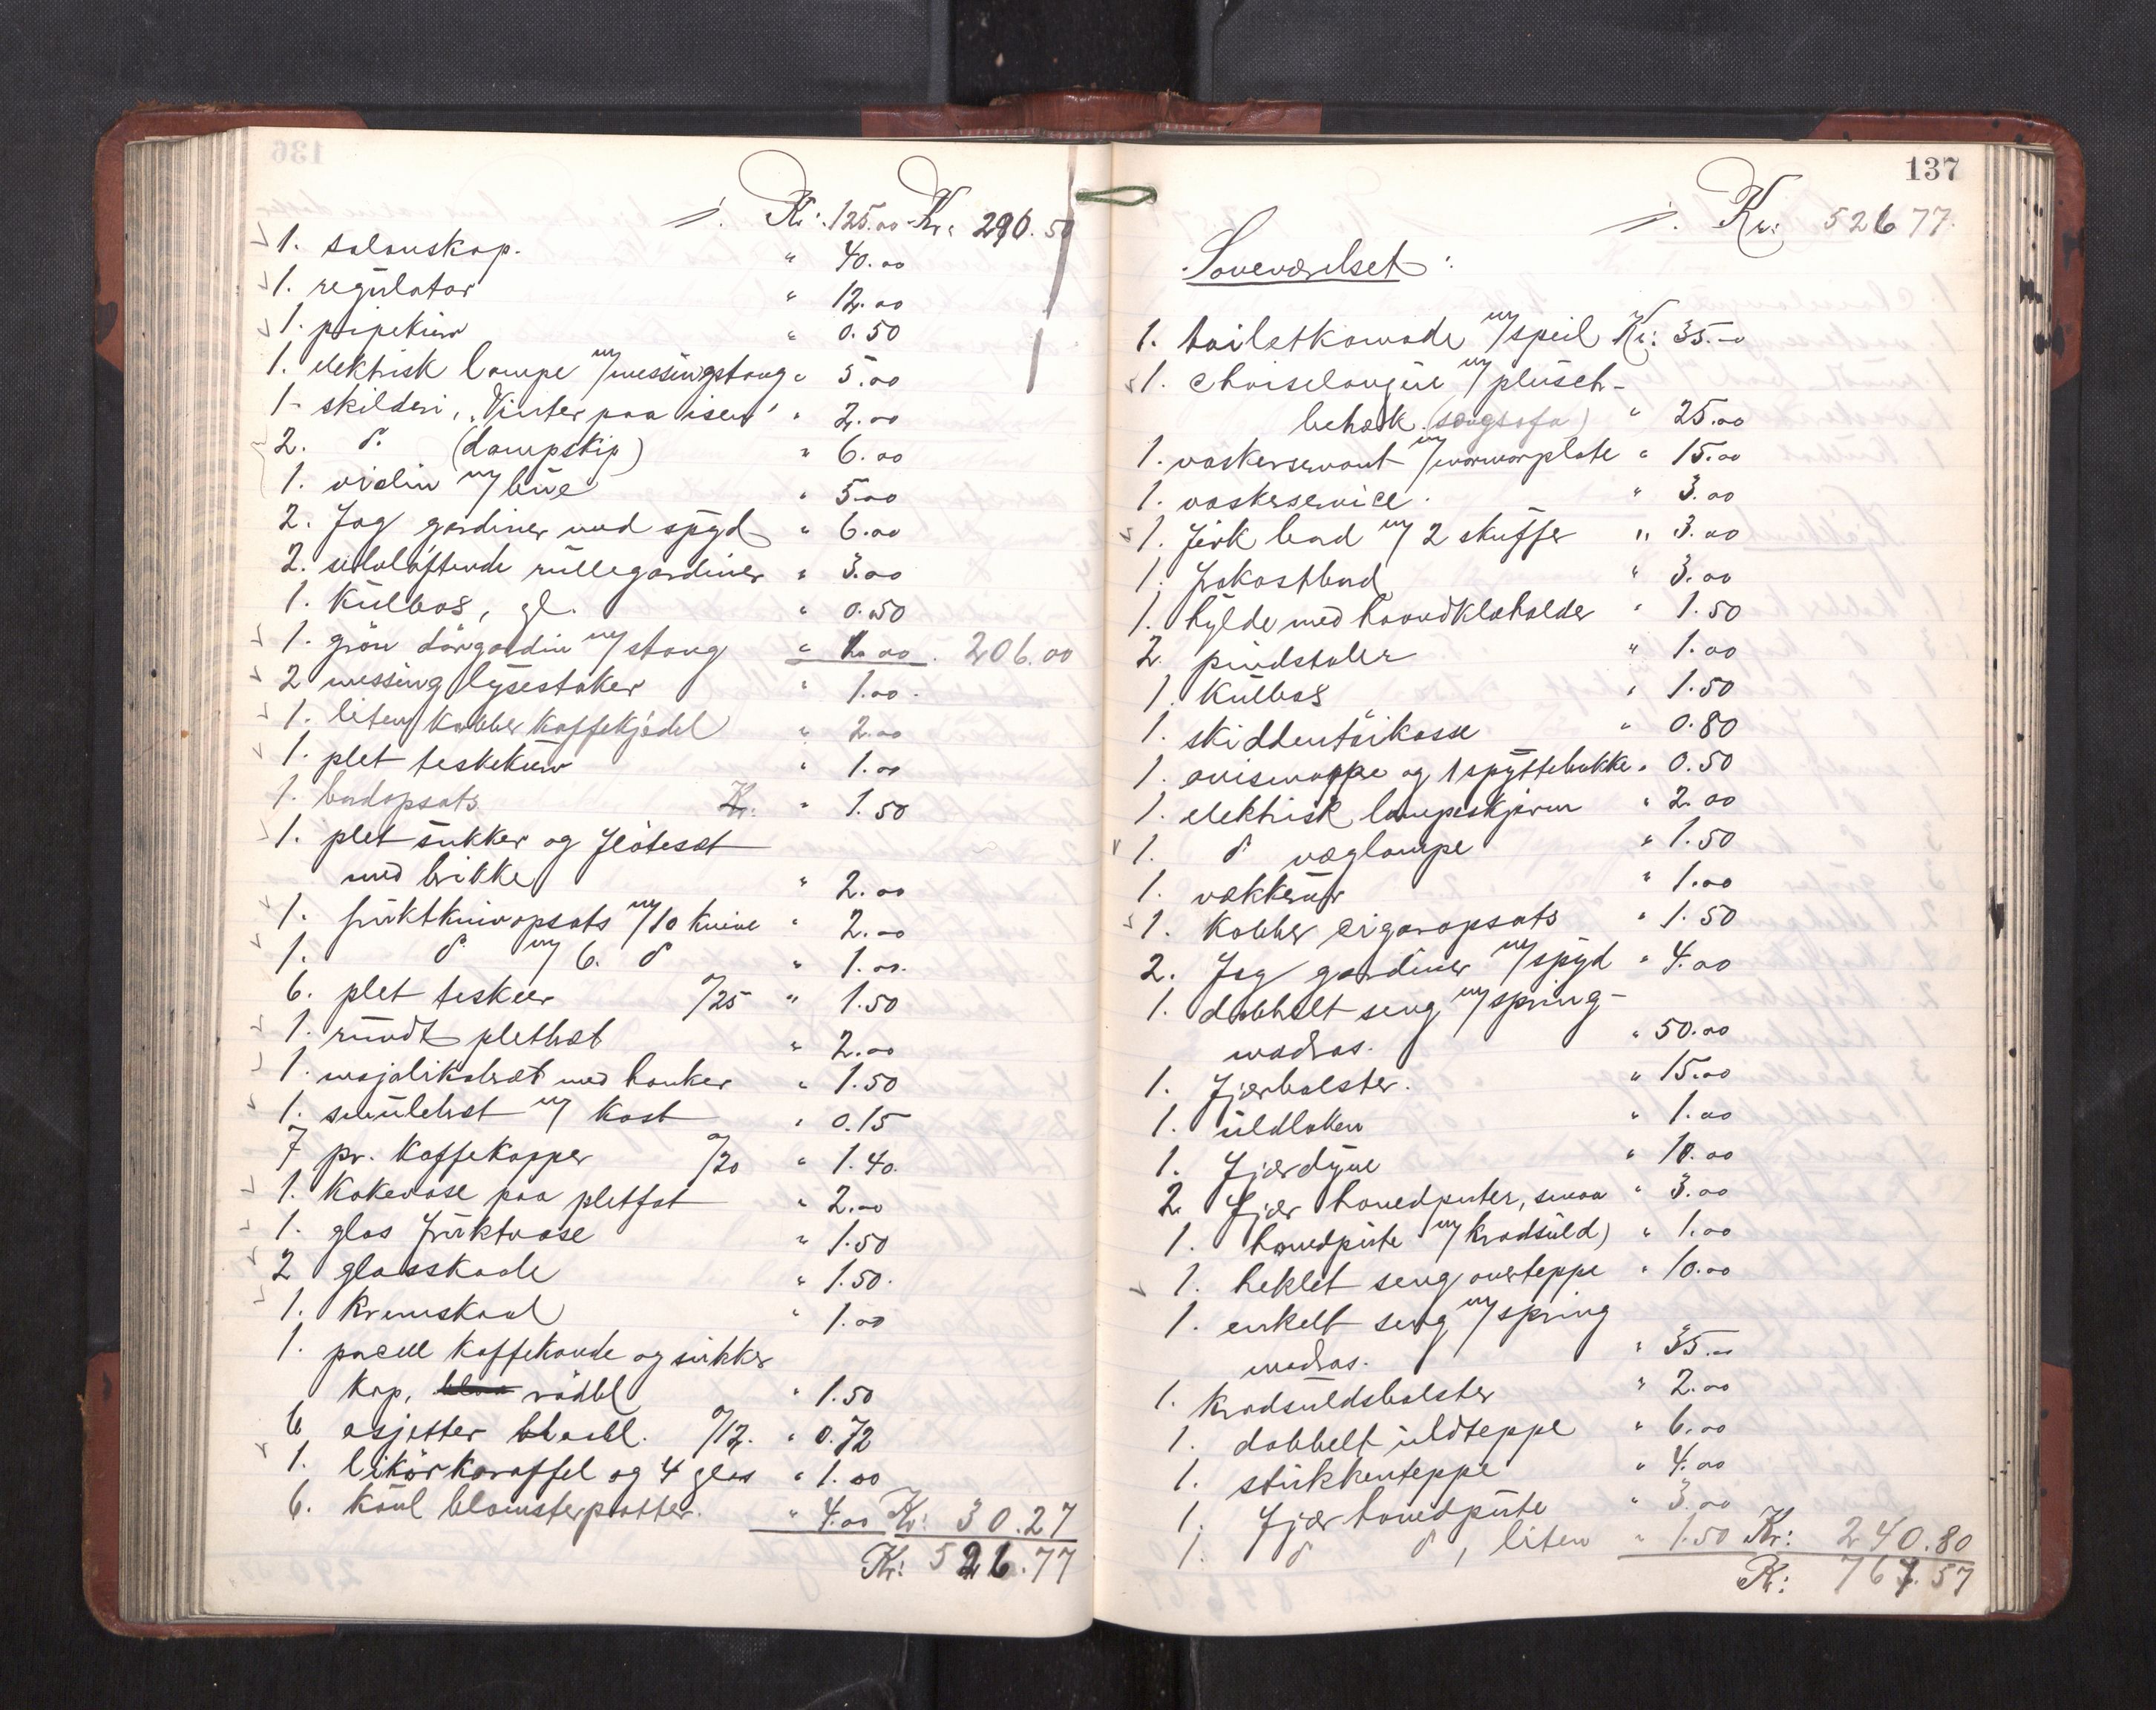 136
Kr: 125.00 Kr: 290.50
1. salonskap. " 40.00
1. regulator " 12.00
1. pipekurv " 0.50
1. elektrisk lampe m/messingstang " 5.00
1- skilderi, "Vinter paa isen" " 2.00
2. do. (dampskip) " 6.00
1. violin m/ bue " 5.00
2. fag gardiner med spyd " 6.00
2. selvløftende rullegardiner " 3.00
1. kulbox, gl. " 0.50
1. grön dörgardin m/ stang " 1.00. 206.00
2 messing lysestaker " 1.00.
1. liten kobber kaffekjedel " 2.00
1. plet teskekurv " 1.00
1. bordopsats Kr. " 1.50
1. plet sukker og flötesæt
med brikke " 2.00
1. fruktknivopsats m/10 knive " 2.00
1. do. m/ 6. do " 1.00.
6. plet teskeer a/25 " 1.50
1. rundt pletbræt " 2.00
1. majolikabræt med hanker " 1.50
1. smulebræt m/ kost " 0.15
7 pr. kaffekopper a/20 " 1.40.
1. kakevase paa pletfot " 2.00
1. glas fruktvase " 1.50
2 glasskaale " 1.50.
1. kremskaal " 1.00
1. porcell kaffekande og sukker
kop, rödbl " 1.50
6 asjetter blaabl. a/12. " 0.72
1. likörkaraffel og 4 glas " 1.00
6. blomsterpotter. " 4.00 Kr: 30.27
Kr: 526.77
137
Kr: 526 77.
Soveværelset:
1. toiletkomode m/speil Kr: 35.-
1. chaiselongue m/ plusch-
betræk (sengsofa) " 25.00
1. vaskeservant m/marmorplate " 15.00
1. vaskeservice. " 3.00
1. firk bord m/ 2 skuffer " 3.00
1. frokostbord " 3.00
1. hylde med haandklæholder " 1.50
2. pindstoler " 1.00
1. kulbox " 1.50
1. skiddentöikasse " 0.80
1. avismappe og 1 spyttebakke " 0.50
1. elektrisk lampeskjærm " 2.00
1. do væglampe " 1.50
1. vækkerur " 1.00
1. kobber cigaropsats " 1.50
2. fag gardiner m/spyd " 4.00
1. dobbelt seng m/spring-
madras. " 50.00
1. fjærbolster. " 15.00
1. uldlaken " 1.00
1. fjærdyne " 10.00
2. fjær hovedputer, smaa " 3.00
1. hovedpute m/kradsuld) " 1.00
1. heklet seng overteppe " 10.00
1. enkelt seng m/spring
madras. " 35.-
1. kradsuldsbolster " 2.00
1. dobbelt uldteppe " 6.00
1. stikkenteppe " 4.00
1. fjær hovedpute " 3.00
1. do do, liten " 1.50 Kr: 240.80
Kr: 767.57